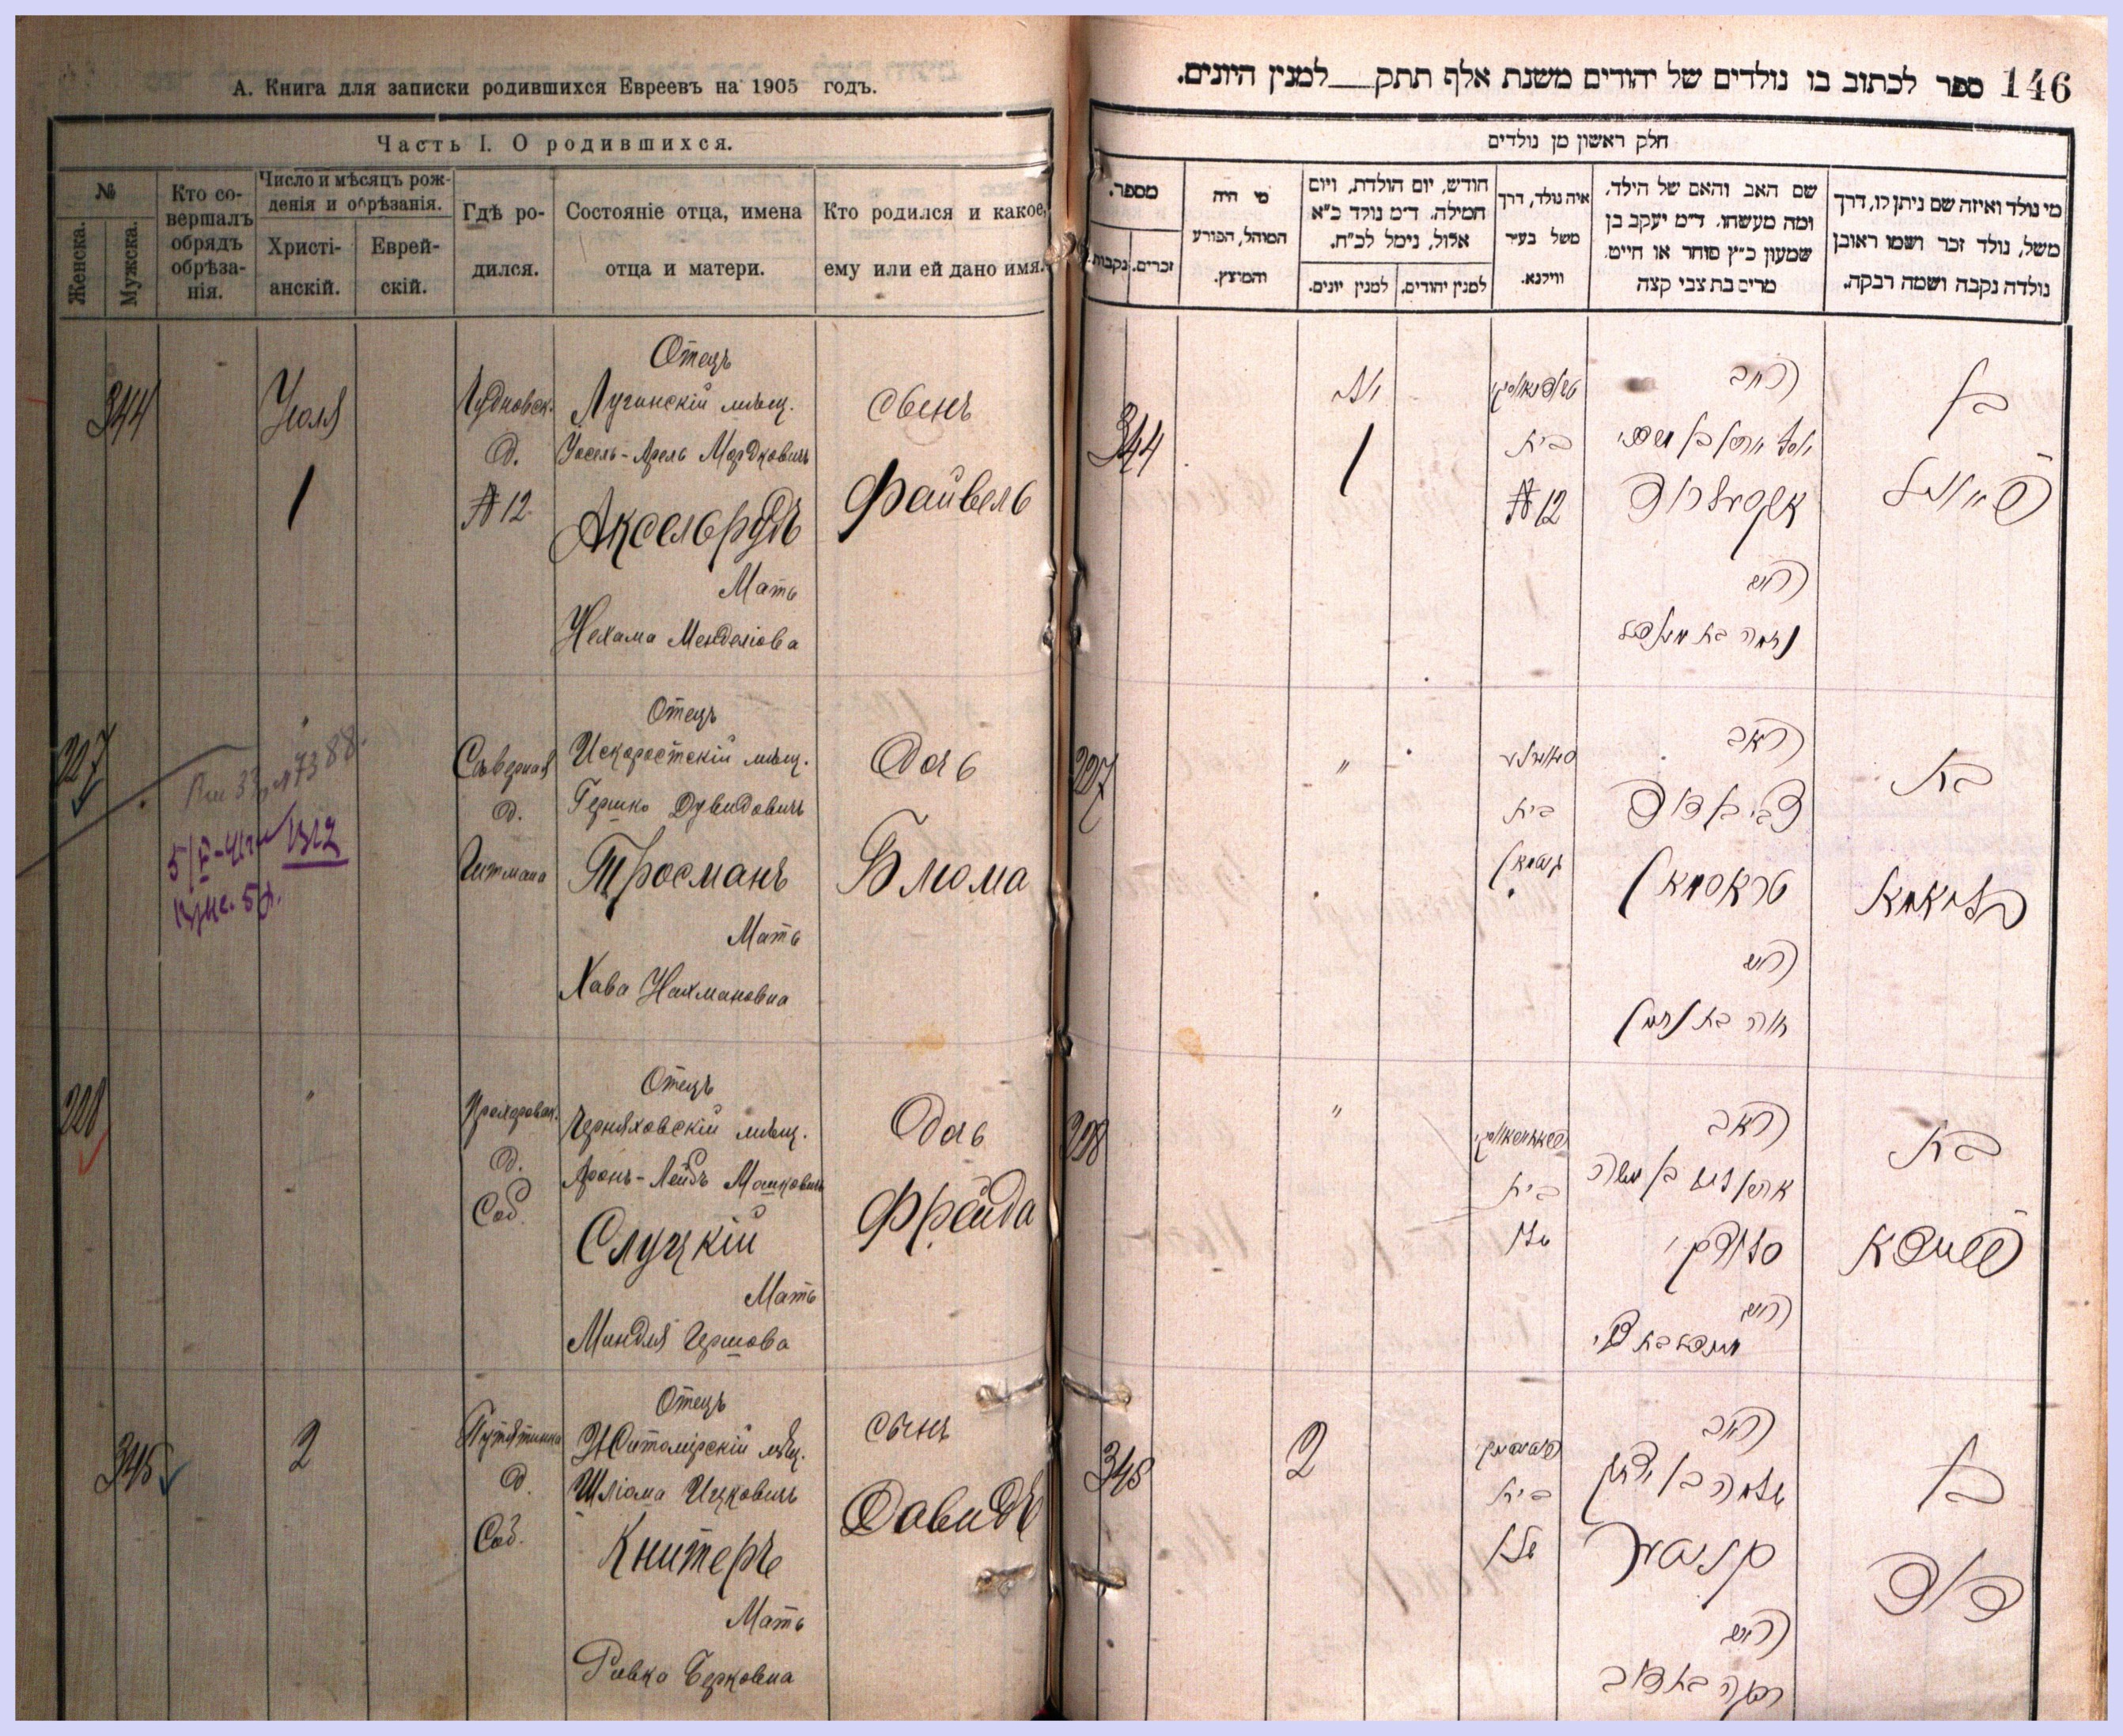 А. Книга для записки родившихся Евреевъ на 1905 годъ.
Часть I. О родившихся.
№
Женска.
Мужска.
Кто со-
вершалъ
обрядъ
обрѣза-
нія.
Число и мѣсяцъ рож-
денія и обрѣзанія.
Христі-
анскій.
Еврей-
скій.
Гдѣ ро-
дился.
Состояніе отца, имена
отца и матери.
Кто родился и какое
ему или ей дано имя.
344
Іюля
1
д.
№ 12
Отецъ
Лугинскій мѣщ.
Іосель-Арель Мордковичъ
Аксельрудъ
Мать
Нехама Менделіова
сынъ
Файвель
227
1312
Сѣверная
д.
Гитмана
Отецъ
Искоростскій мѣщ.
Гершко Дувидовичъ
Тросманъ
Мать
Хава Нахмановна
Дочь
Блюма
228
"
д.
Соб.
Отецъ
Черняховскій мѣщ.
Аронъ-Лейбъ Мошковичъ
Слуцкій
Мать
Миндля Гершова
Дочь
Фрейда
345
2
д.
Соб.
Отецъ
Житомірскій мѣщ.
Шліома Ицковичъ
Книтеръ
Мать
Ривка Берковна
сынъ
Давидъ
146
ספר לכתוב בו נולדים של יהודים משנת אלף תתק__למנין היונים.
חלק ראשון מן נולדים
מספר.
נקבות.
זכרים.
מי היה
המוהל, הפורע
והמוצץ.
חודש, יום הולדת, ויום
המילה. ד״מ נולד כ״א
אלול, נימל לכ״ח.
למנין יונים.
למנין יהודים.
איה נולד, דרך
משל בעיר
ווילנא.
שם האב והאם של הילד,
ומה מעשהו. ד״מ יעקב בן
שמעון כ״ץ סוחר או חייט.
מרים בת צבי קצה
מי נולד ואיזה שם ניתן לו, דרך
משל, נולד זכר ושמו ראובן
נולדה נקבה ושמה רבקה.
344
1
בית
№ 12
האב
אקסעלרוד
האם
נחמה בת מענדל
בן
פייוויל
227
"
בית
גיטמאן
האב
צבי בן דוד
טראסמאן
האם
חוה בת נחמן
בת
בלומא
228
"
בית
שלו
האב
אהרן ליב בן משה
סלוצקי
האם
בת
פריידא
345
2
בית
שלו
האב
שלמה בן יצחק
קניטער
האם
רבקה בת דוב
בן
דוד